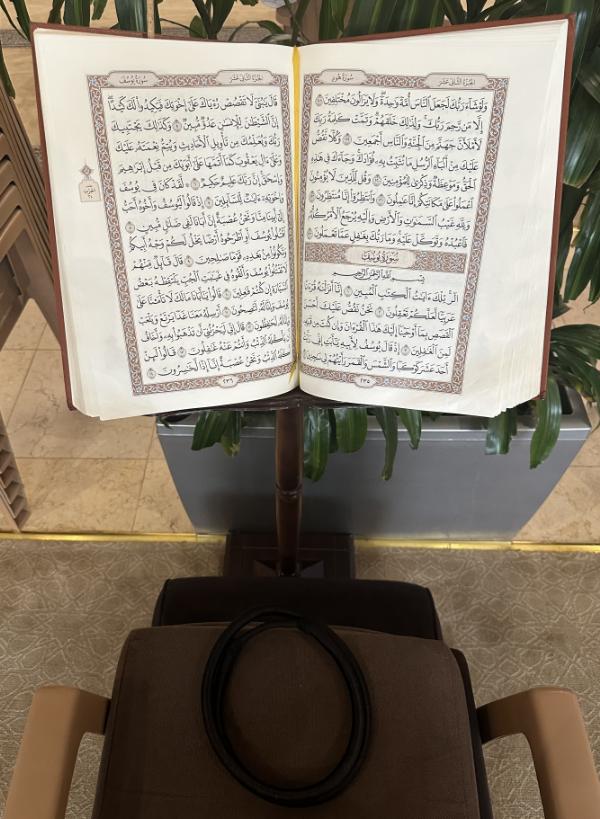 الجُزءُ الثَّانِي عَشَرَ
سُورَةُ هُودٍ
وَلَوْ شَآءَ رَبُّكَ لَجَعَلَ ٱلنَّاسَ أُمَّةً وَٰحِدَةً وَلَا يَزَالُونَ مُخْتَلِفِينَ ١١٨
إِلَّا مَن رَّحِمَ رَبُّكَ وَلِذَٰلِكَ خَلَقَهُمْ وَتَمَّتْ كَلِمَةُ رَبِّكَ
لَأَمْلَأَنَّ جَهَنَّمَ مِنَ ٱلْجِنَّةِ وَٱلنَّاسِ أَجْمَعِينَ ١١٩ وَكُلًّا نَّقُصُّ
عَلَيْكَ مِنْ أَنۢبَآءِ ٱلرُّسُلِ مَا نُثَبِّتُ بِهِۦ فُؤَادَكَ وَجَآءَكَ فِي هَٰذِهِ
ٱلْحَقُّ وَمَوْعِظَةٌ وَذِكْرَىٰ لِلْمُؤْمِنِينَ ١٢٠ وَقُل لِّلَّذِينَ لَا يُؤْمِنُونَ
ٱعْمَلُوا۟ عَلَىٰ مَكَانَتِكُمْ إِنَّا عَٰمِلُونَ ١٢١ وَٱنتَظِرُوٓا۟ إِنَّا مُنتَظِرُونَ ١٢٢
وَلِلَّهِ غَيْبُ ٱلسَّمَٰوَٰتِ وَٱلْأَرْضِ وَإِلَيْهِ يُرْجَعُ ٱلْأَمْرُ كُلُّهُۥ
فَٱعْبُدْهُ وَتَوَكَّلْ عَلَيْهِ وَمَا رَبُّكَ بِغَٰفِلٍ عَمَّا تَعْمَلُونَ ١٢٣
سُورَةُ يُوسُفَ
بِسْمِ ٱللَّهِ ٱلرَّحْمَٰنِ ٱلرَّحِيمِ
الٓر تِلْكَ ءَايَٰتُ ٱلْكِتَٰبِ ٱلْمُبِينِ ١ إِنَّآ أَنزَلْنَٰهُ قُرْءَٰنًا
عَرَبِيًّا لَّعَلَّكُمْ تَعْقِلُونَ ٢ نَحْنُ نَقُصُّ عَلَيْكَ أَحْسَنَ
ٱلْقَصَصِ بِمَآ أَوْحَيْنَآ إِلَيْكَ هَٰذَا ٱلْقُرْءَانَ وَإِن كُنتَ مِن قَبْلِهِۦ
لَمِنَ ٱلْغَٰفِلِينَ ٣ إِذْ قَالَ يُوسُفُ لِأَبِيهِ يَٰٓأَبَتِ إِنِّي رَأَيْتُ
أَحَدَ عَشَرَ كَوْكَبًا وَٱلشَّمْسَ وَٱلْقَمَرَ رَأَيْتُهُمْ لِي سَٰجِدِينَ ٤
٢٣٥
الجُزءُ الثَّانِي عَشَرَ
سُورَةُ يُوسُفَ
قَالَ يَٰبُنَيَّ لَا تَقْصُصْ رُءْيَاكَ عَلَىٰٓ إِخْوَتِكَ فَيَكِيدُوا۟ لَكَ كَيْدًا
إِنَّ ٱلشَّيْطَٰنَ لِلْإِنسَٰنِ عَدُوٌّ مُّبِينٌ ٥ وَكَذَٰلِكَ يَجْتَبِيكَ
رَبُّكَ وَيُعَلِّمُكَ مِن تَأْوِيلِ ٱلْأَحَادِيثِ وَيُتِمُّ نِعْمَتَهُۥ عَلَيْكَ
وَعَلَىٰٓ ءَالِ يَعْقُوبَ كَمَآ أَتَمَّهَا عَلَىٰٓ أَبَوَيْكَ مِن قَبْلُ إِبْرَٰهِيمَ
وَإِسْحَٰقَ إِنَّ رَبَّكَ عَلِيمٌ حَكِيمٌ ٦ لَّقَدْ كَانَ فِي يُوسُفَ
وَإِخْوَتِهِۦٓ ءَايَٰتٌ لِّلسَّآئِلِينَ ٧ إِذْ قَالُوا۟ لَيُوسُفُ وَأَخُوهُ أَحَبُّ
إِلَىٰٓ أَبِينَا مِنَّا وَنَحْنُ عُصْبَةٌ إِنَّ أَبَانَا لَفِي ضَلَٰلٍ مُّبِينٍ ٨
ٱقْتُلُوا۟ يُوسُفَ أَوِ ٱطْرَحُوهُ أَرْضًا يَخْلُ لَكُمْ وَجْهُ أَبِيكُمْ
وَتَكُونُوا۟ مِنۢ بَعْدِهِۦ قَوْمًا صَٰلِحِينَ ٩ قَالَ قَآئِلٌ مِّنْهُمْ
لَا تَقْتُلُوا۟ يُوسُفَ وَأَلْقُوهُ فِي غَيَٰبَتِ ٱلْجُبِّ يَلْتَقِطْهُ بَعْضُ
ٱلسَّيَّارَةِ إِن كُنتُمْ فَٰعِلِينَ ١٠ قَالُوا۟ يَٰٓأَبَانَا مَا لَكَ لَا تَأْمَ۫نَّا عَلَىٰ
يُوسُفَ وَإِنَّا لَهُۥ لَنَٰصِحُونَ ١١ أَرْسِلْهُ مَعَنَا غَدًا يَرْتَعْ وَيَلْعَبْ
وَإِنَّا لَهُۥ لَحَٰفِظُونَ ١٢ قَالَ إِنِّي لَيَحْزُنُنِيٓ أَن تَذْهَبُوا۟ بِهِۦ وَأَخَافُ
أَن يَأْكُلَهُ ٱلذِّئْبُ وَأَنتُمْ عَنْهُ غَٰفِلُونَ ١٣ قَالُوا۟ لَئِنْ
أَكَلَهُ ٱلذِّئْبُ وَنَحْنُ عُصْبَةٌ إِنَّآ إِذًا لَّخَٰسِرُونَ ١٤
٢٣٦